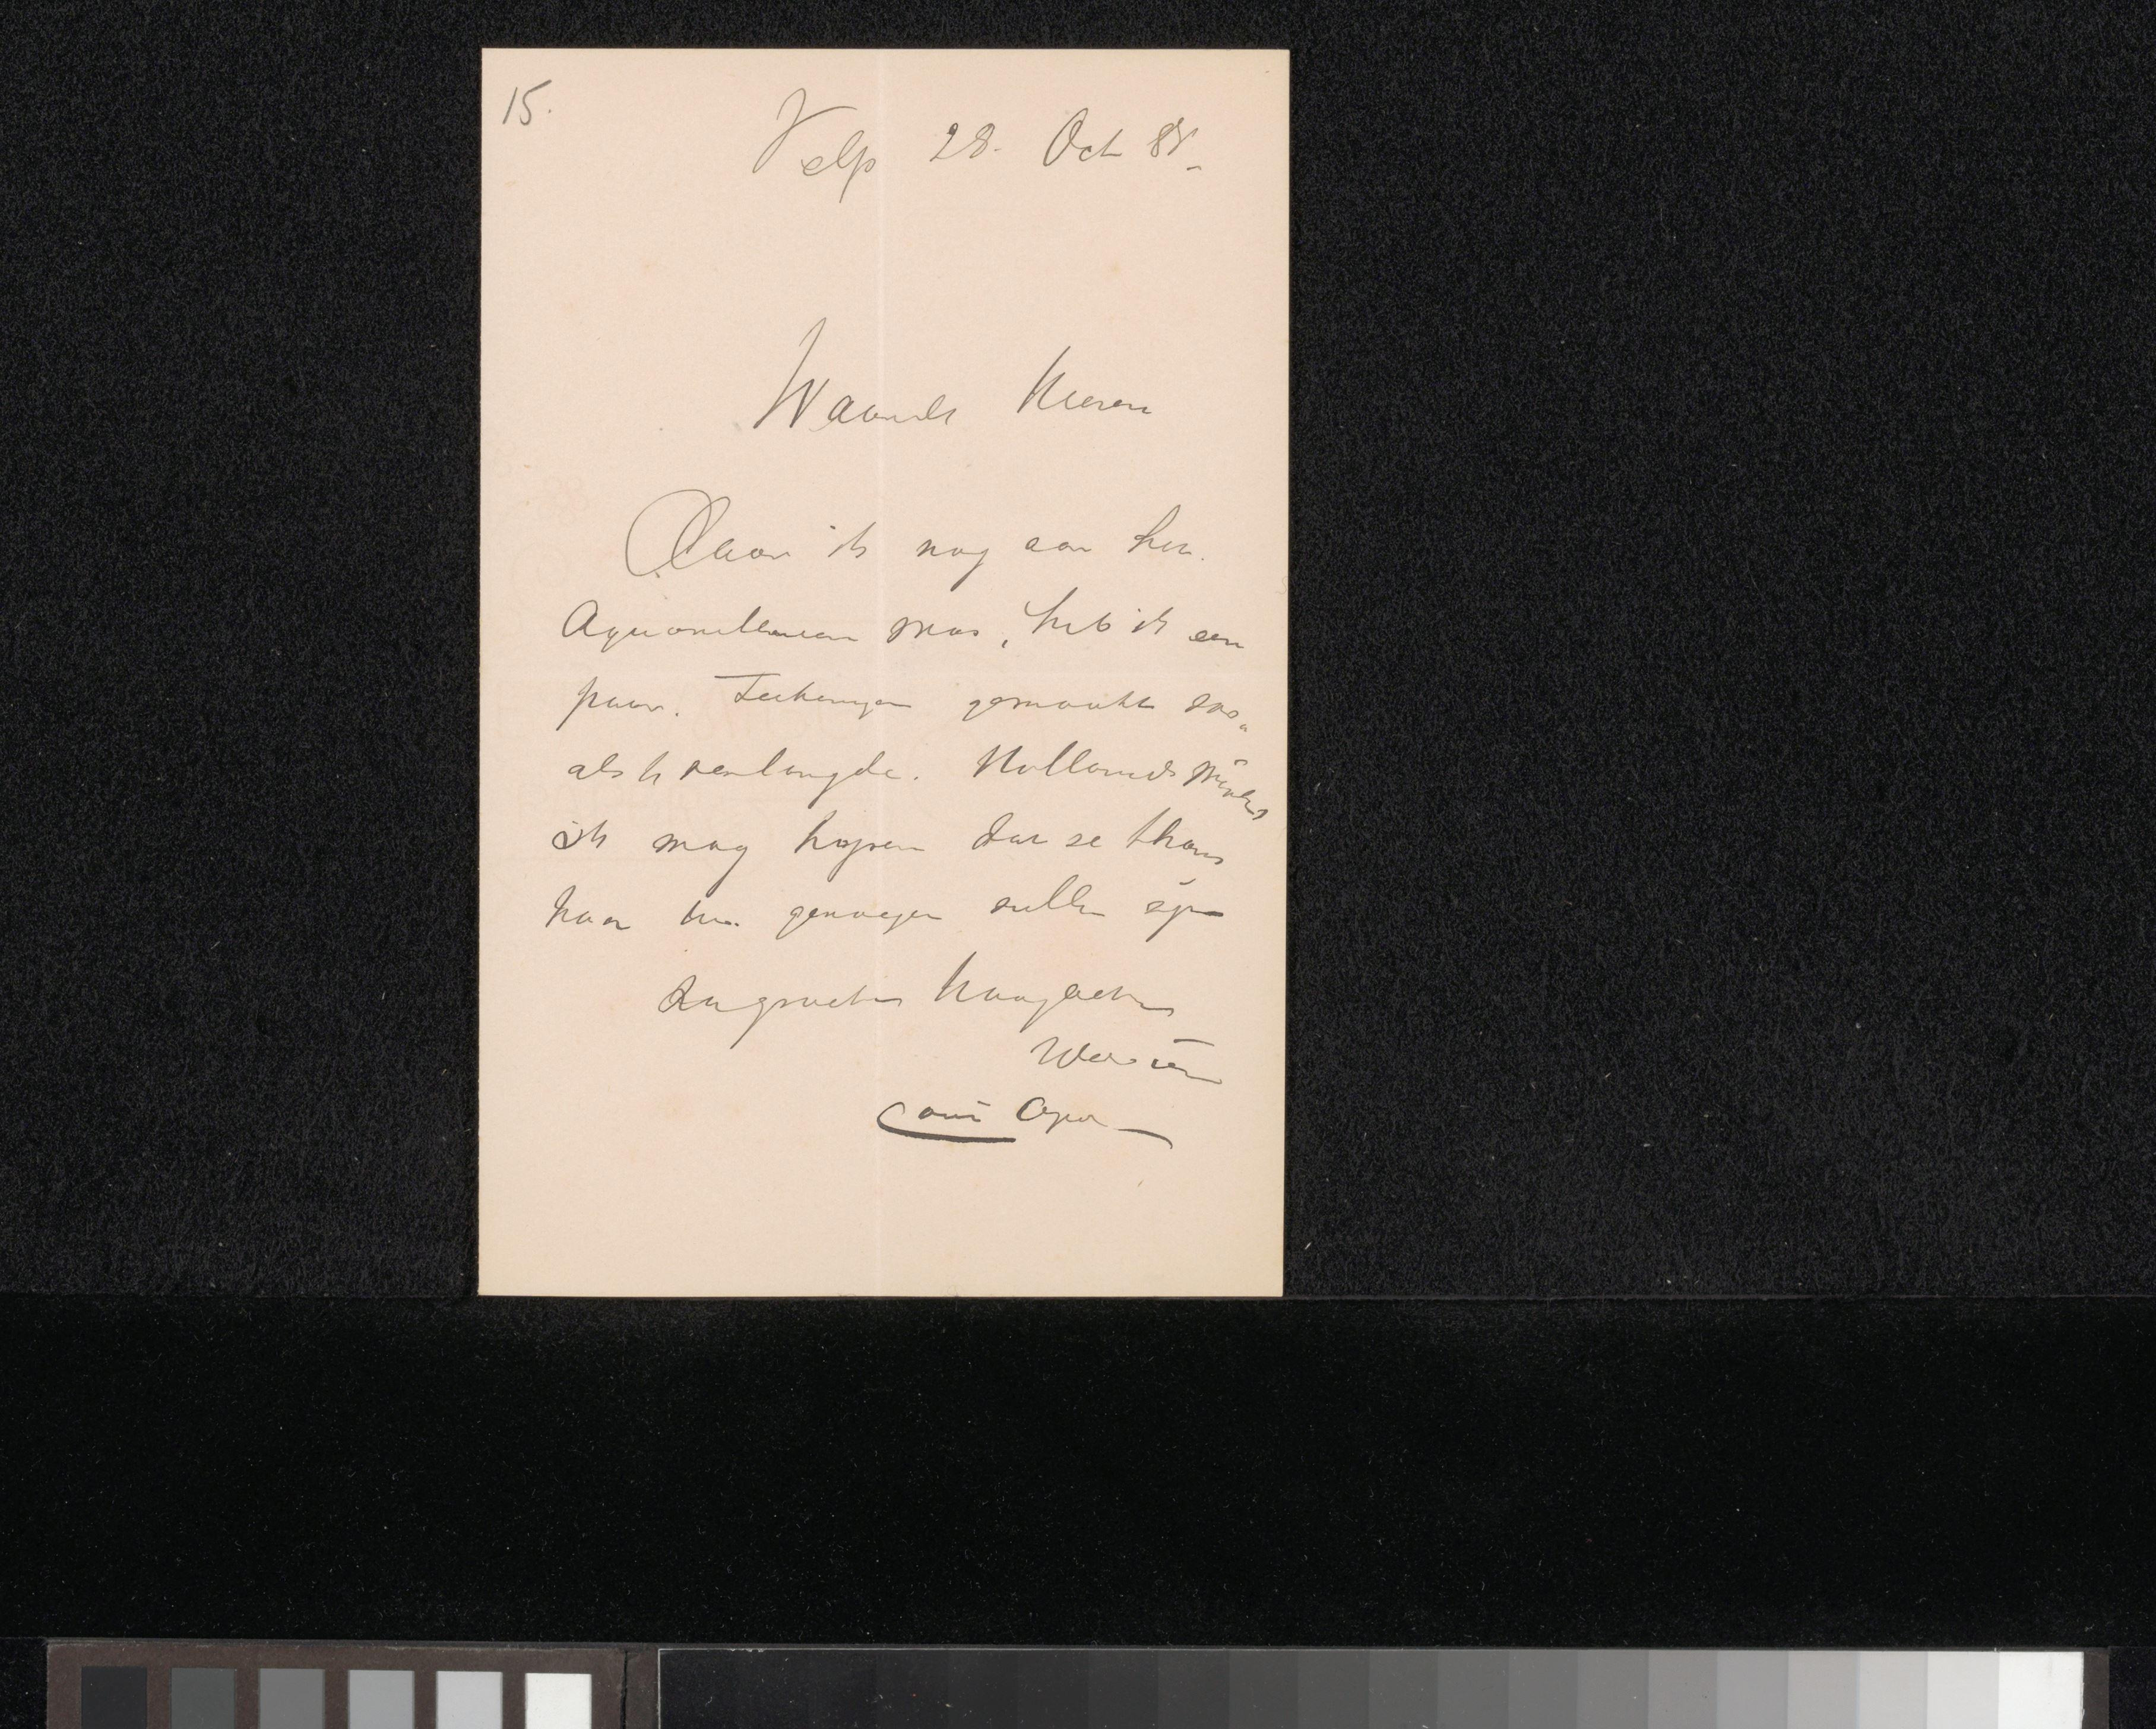 15.
Velp 28. Oct 88.
Waarde Heeren
Daar ik nog aan het
Aquarelleeren was, heb ik een
paar Teekeningen gemaakt zoo
als U verlangde. Hollands winters
ik mag hopen dat ze thans
naar Uw genoegen zullen zijn
Na groeten Hoogachtend
Uw dw
Louis Apol